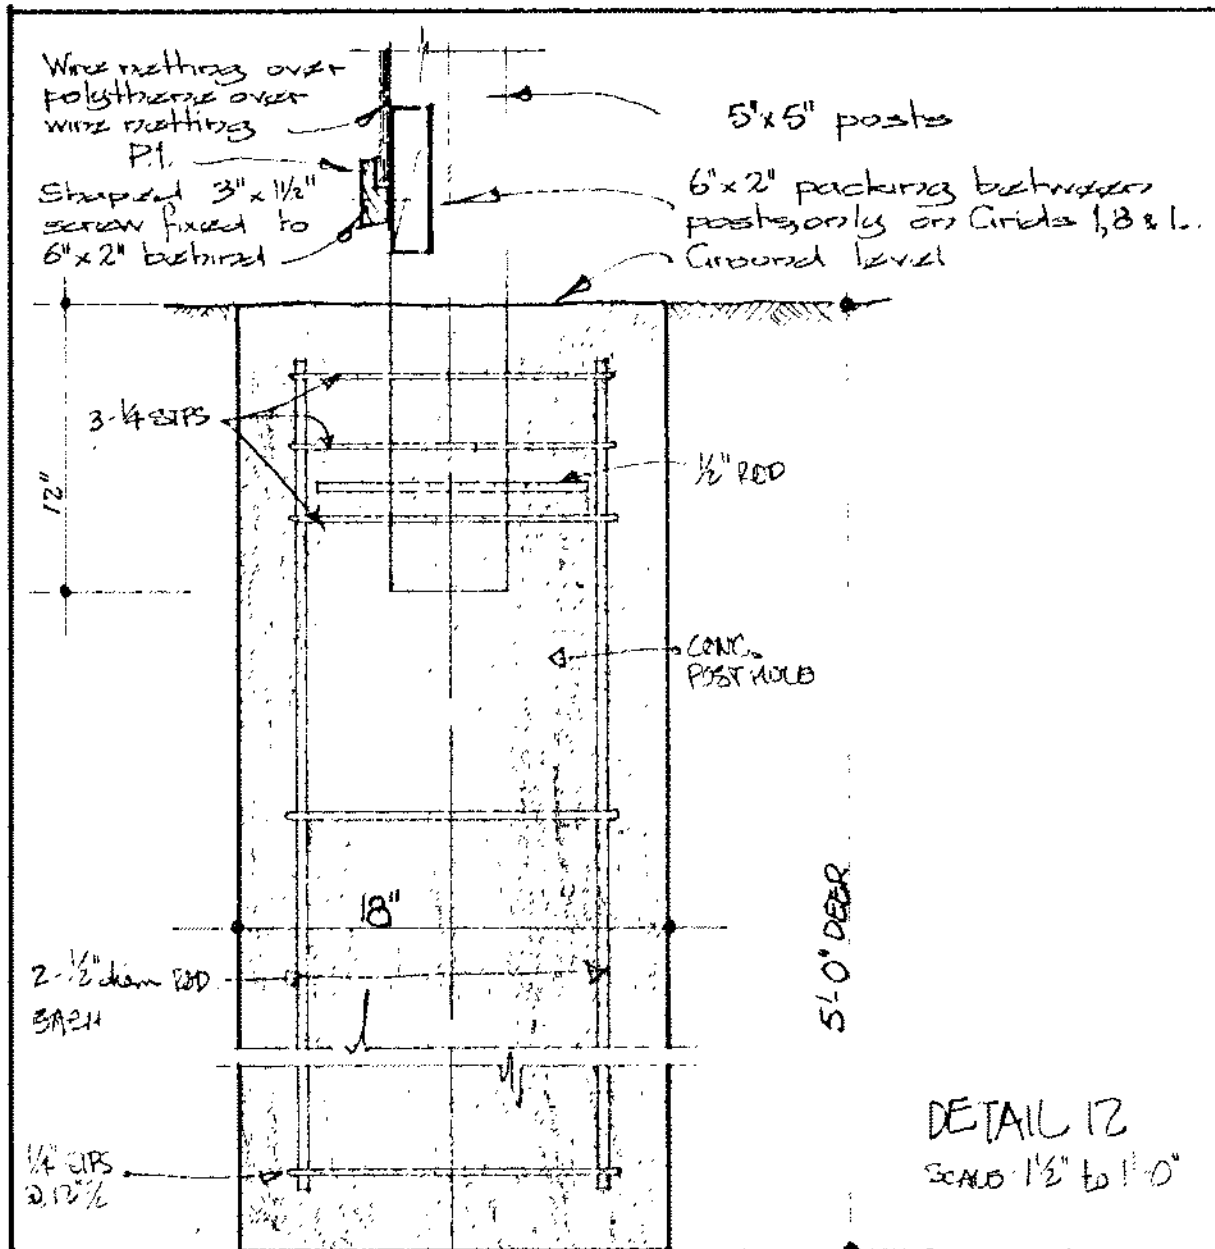 Wire netting over
polythene over
wire netting
P.1.
Shaped 3" x 1½"
screw fixed to
6" x 2" behind
5" x 5" posts
6" x 2" packing between
posts, only on Grids 1, 8 & L.
Ground level
3-¼ STPS
12"
½" ROD
CONC.
POST HOLE
18"
2-½" diam ROD
EACH
5'-0" DEEP
¼" STPS
@ 12"
DETAIL 12
SCALE 1½" to 1'-0"